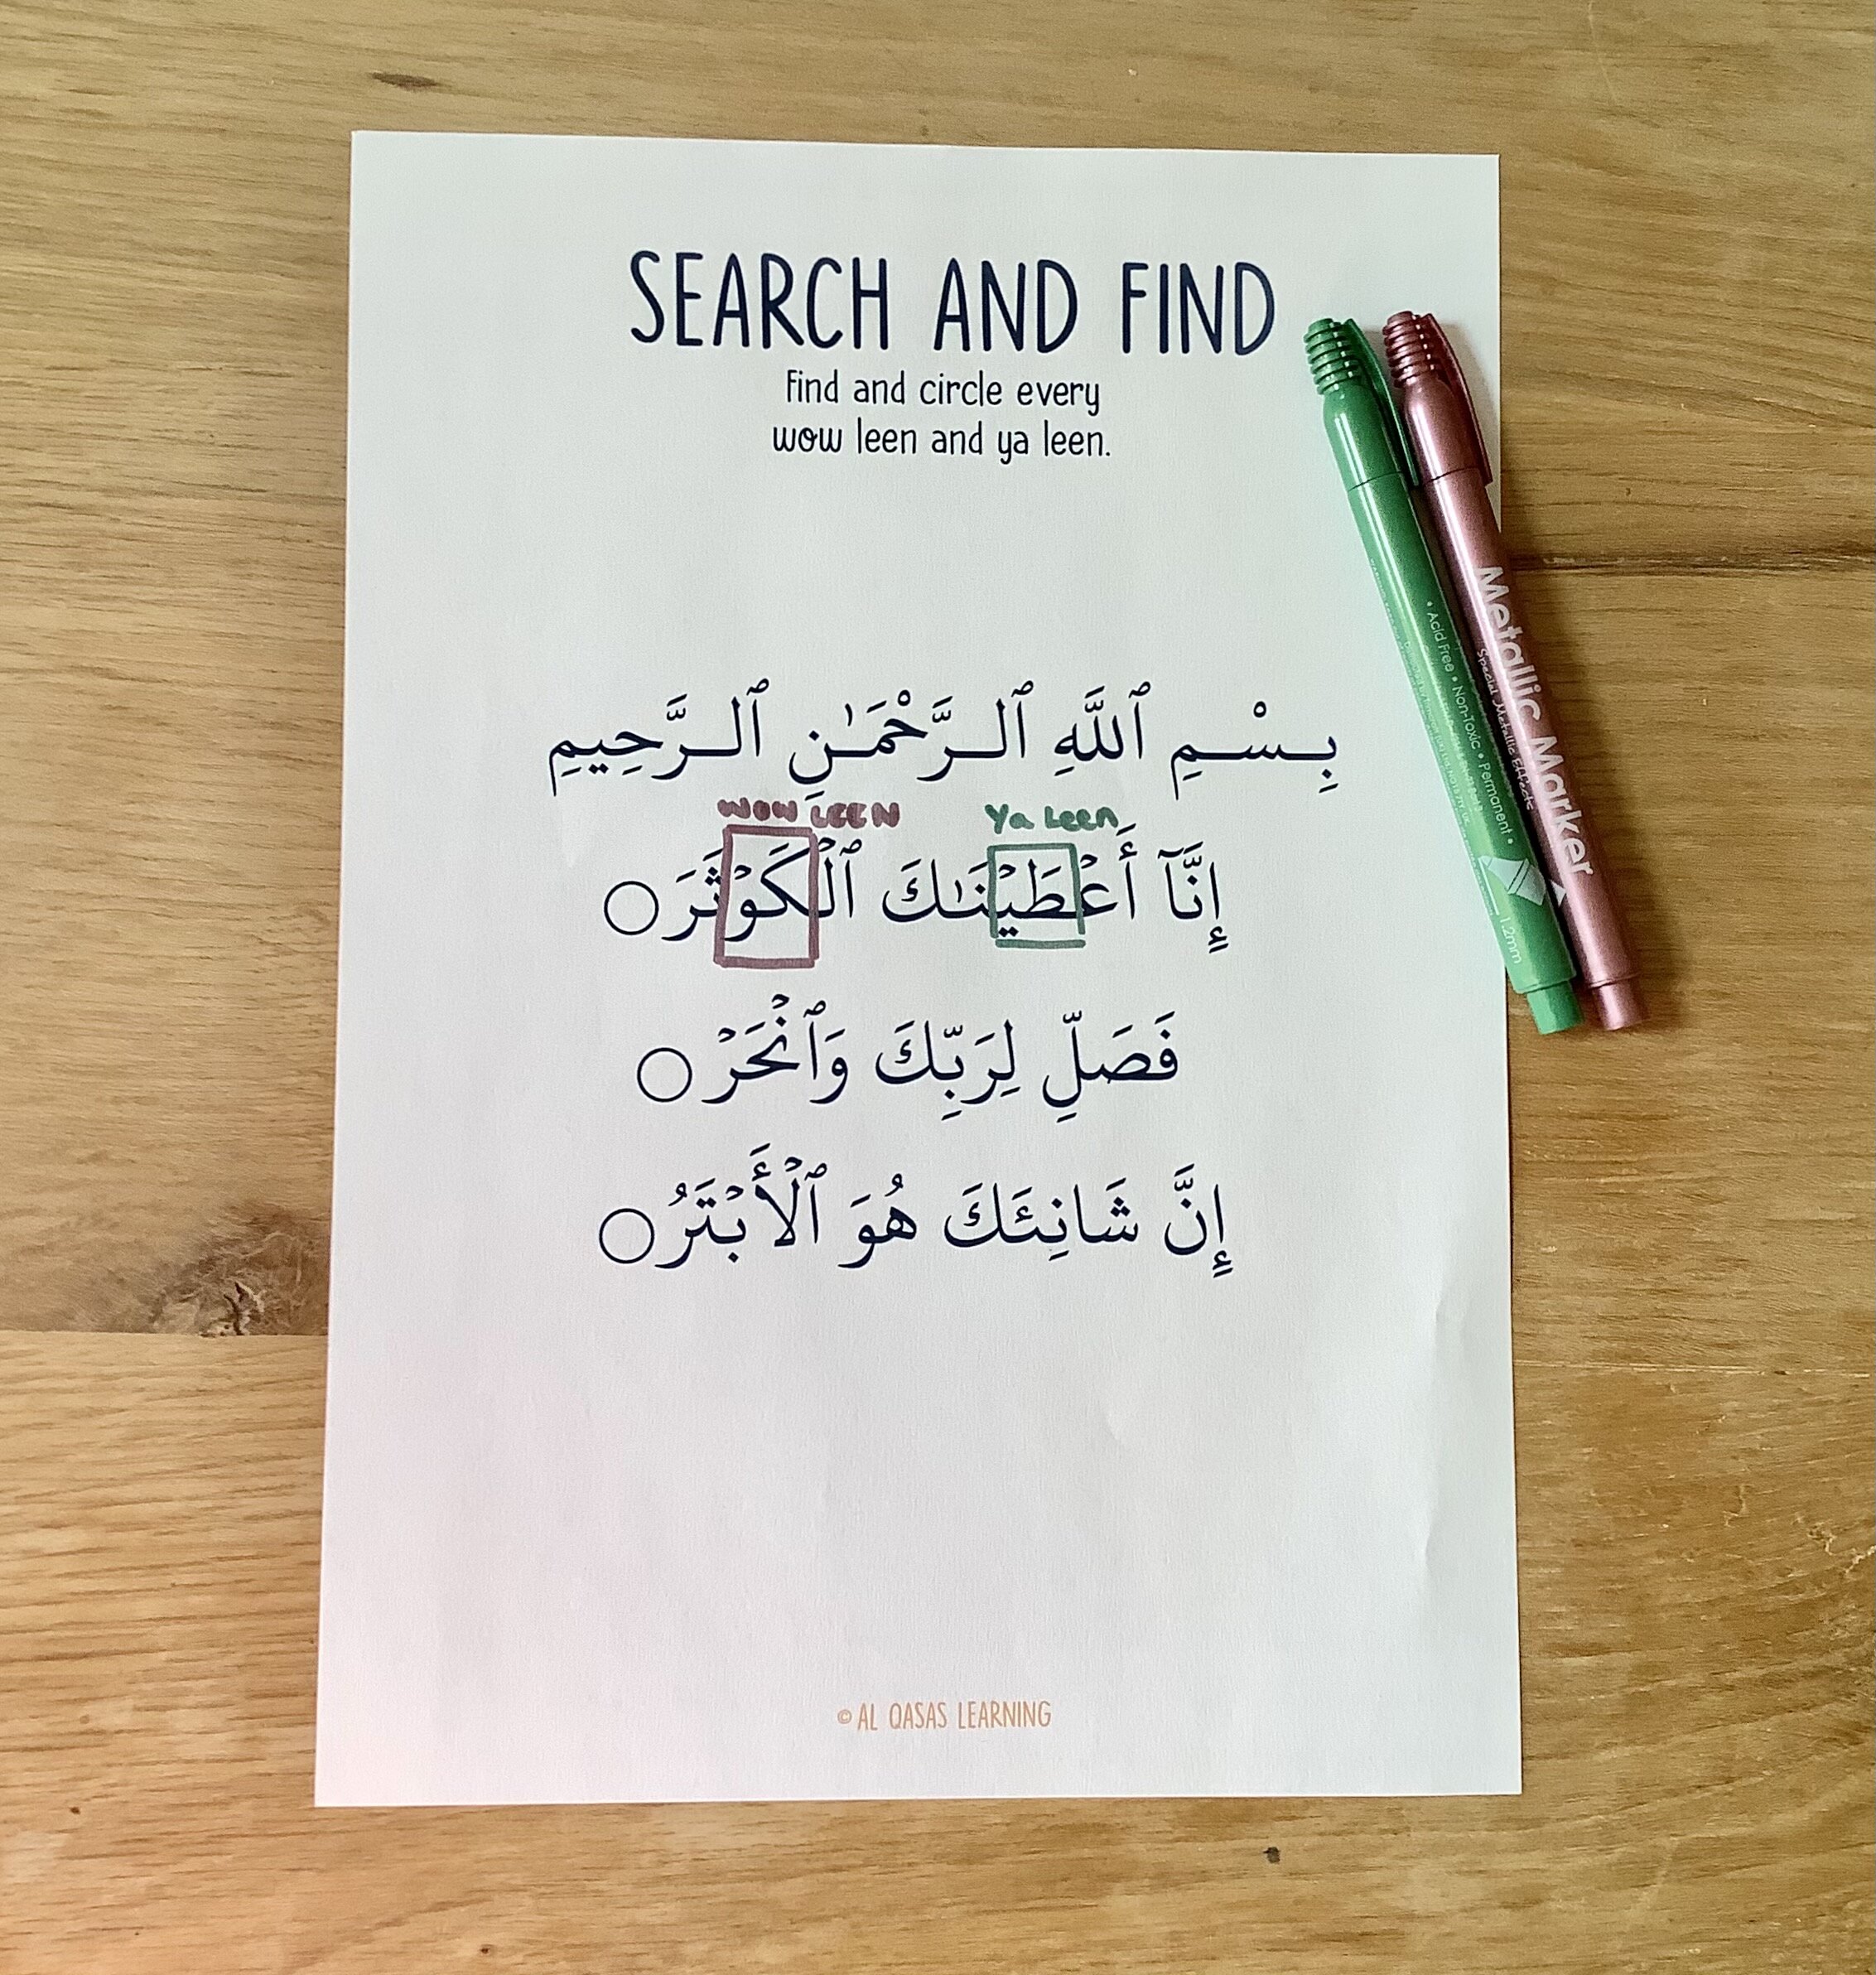 SEARCH AND FIND
Find and circle every
wow leen and ya leen.
بِسْمِ ٱللَّهِ ٱلرَّحْمَـٰنِ ٱلرَّحِيمِ
WOW LEEN
Ya Leen
إِنَّآ أَعْطَيْنَـٰكَ ٱلْكَوْثَرَ
فَصَلِّ لِرَبِّكَ وَٱنْحَرْ
إِنَّ شَانِئَكَ هُوَ ٱلْأَبْتَرُ
© AL QASAS LEARNING
Metallic Marker
Special Metallic Effects
• Acid Free • Non-Toxic • Permanent •
1.2mm